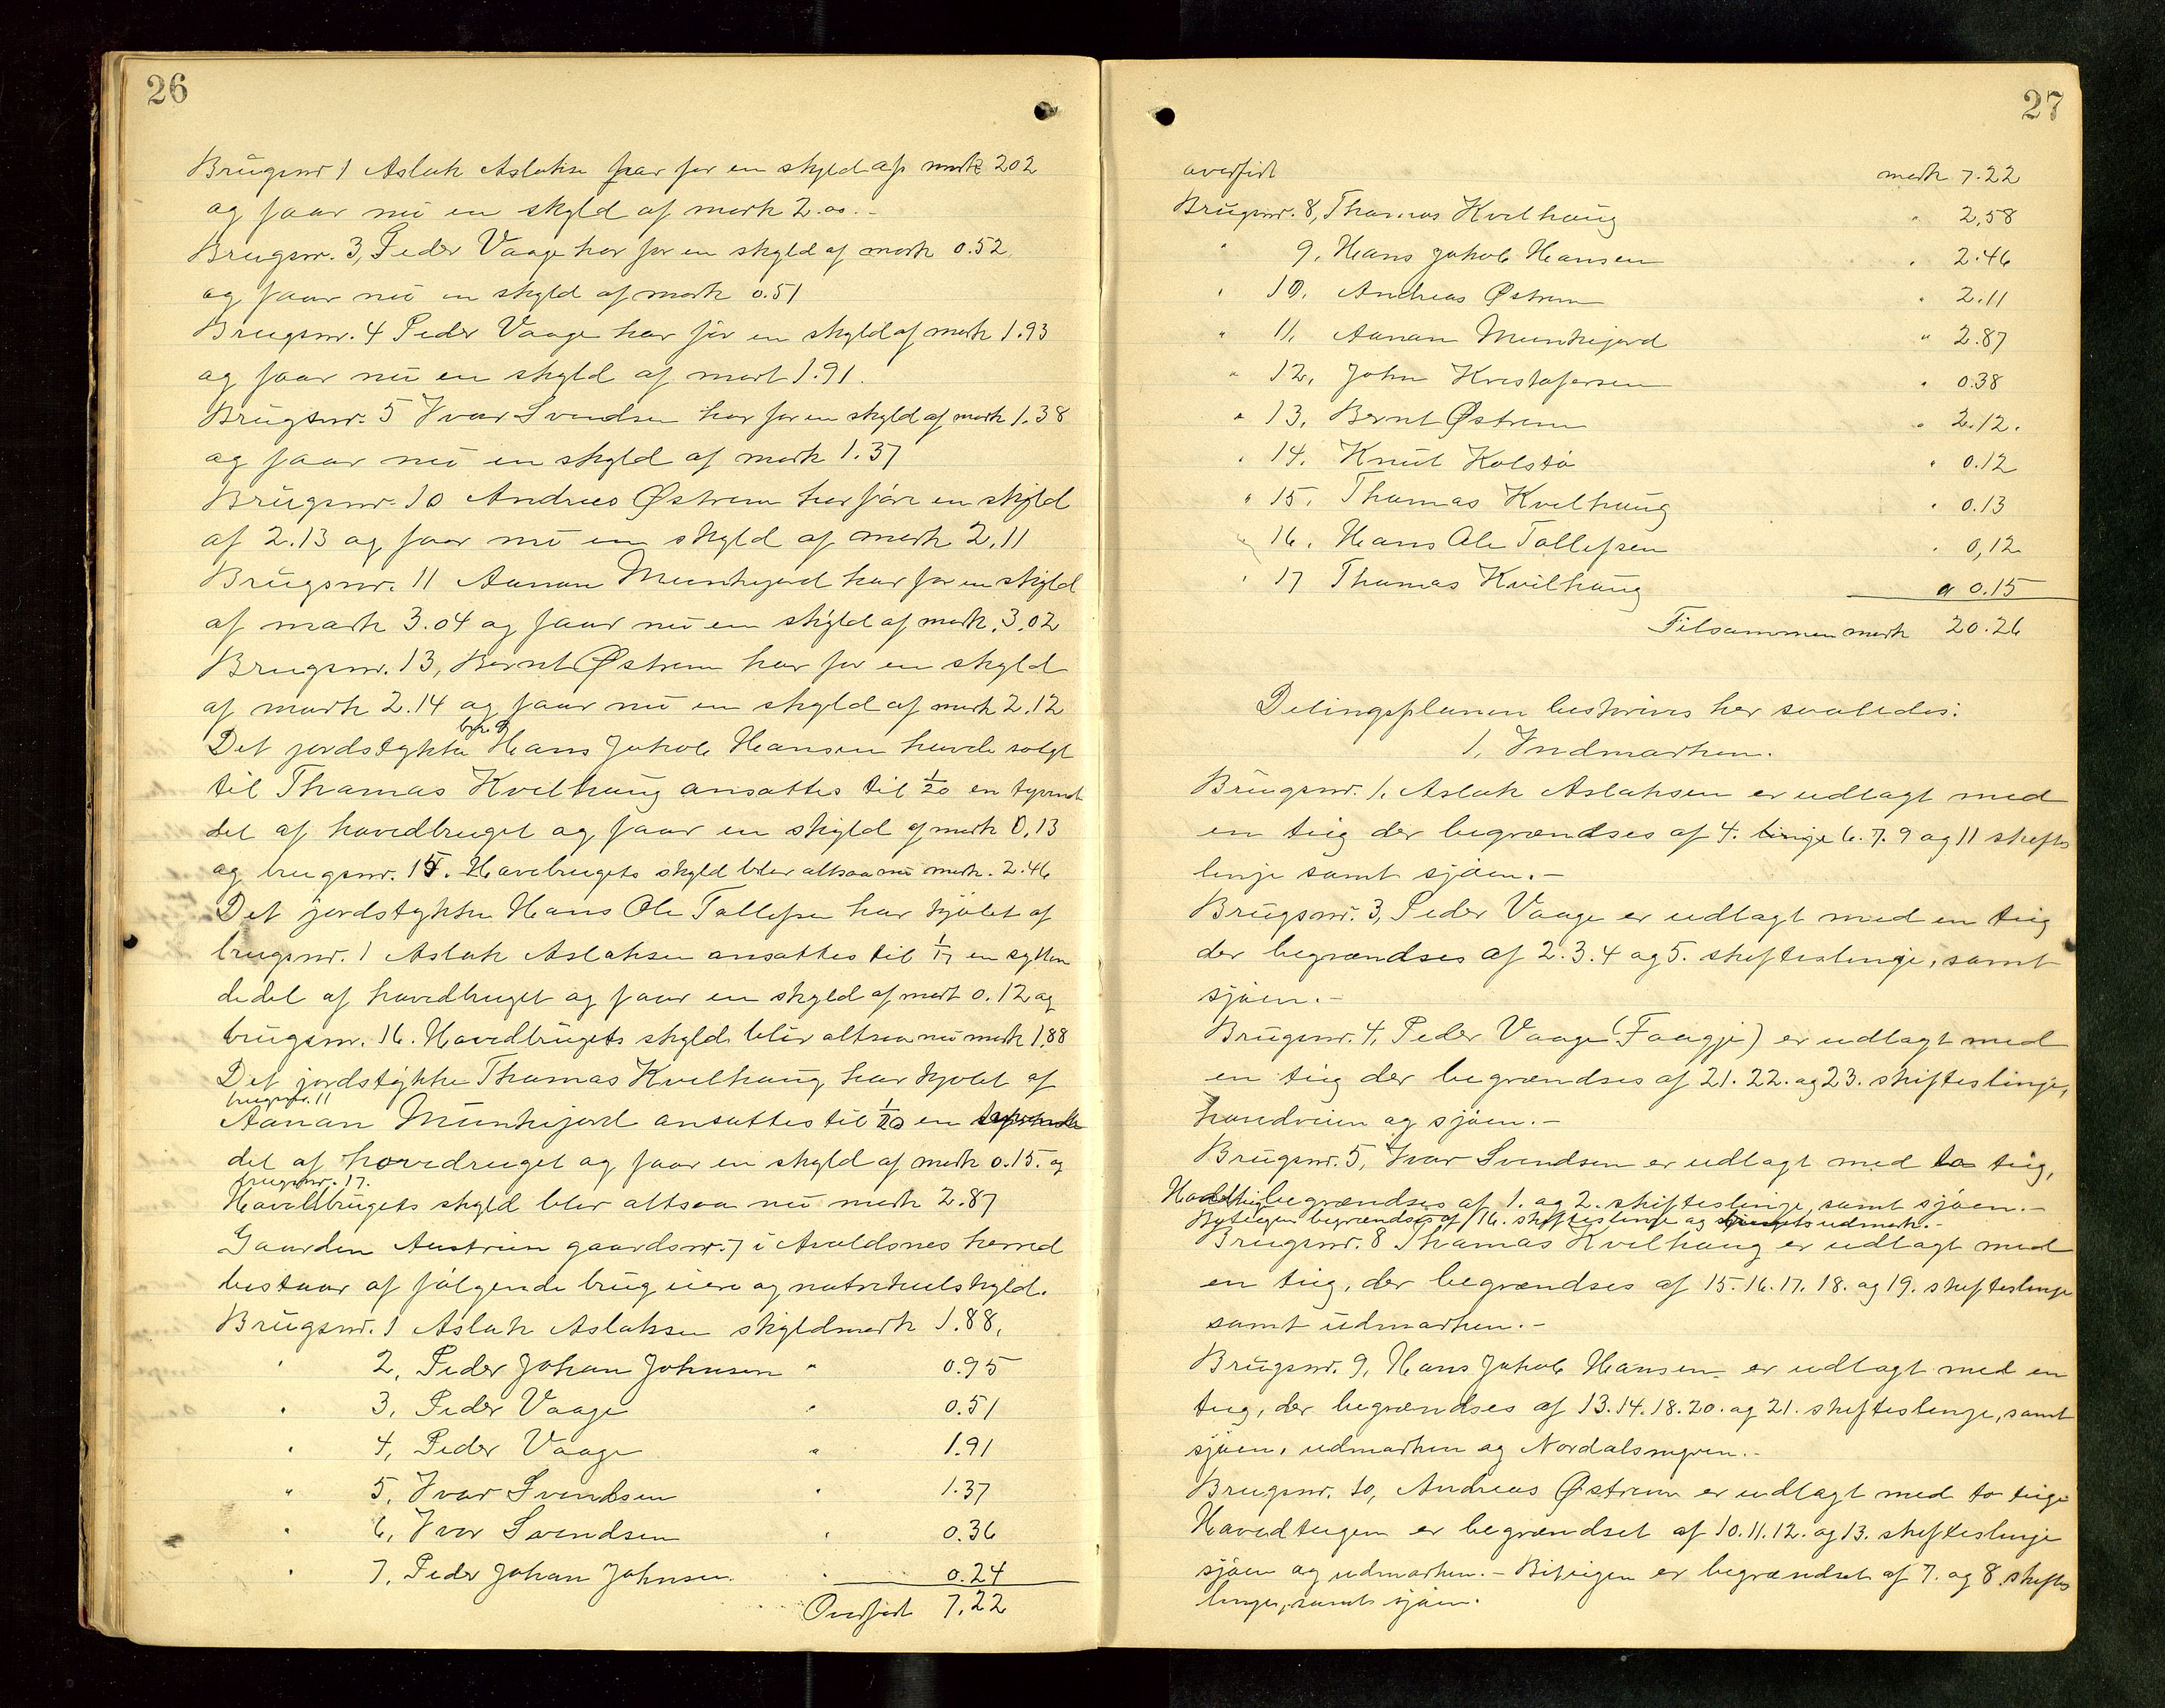 26
Brugsnr 1 Aslak Aslaksen har før en skyld af mark 202
og faar nu en skyld af mark 2.00.-
Brugsnr. 3, Peder Vaage har før en skyld af mark 0.52
og faar nu en skyld af mark 0.51
Brugsnr. 4 Peder Vaage har før en skyld af mark 1.93
og faar nu en skyld af mark 1.91.
Brugsnr. 5 Ivar Svendsen har før en skyld af mark 1.38
og faar nu en skyld af mark 1.37
Brugsnr. 10 Andreas Østrem har før en skyld
af 2.13 og faar nu en skyld af mark 2.11
Brugsnr. 11 Aanan Munkejord har før en skyld
af mark 3.04 og faar nu en skyld af mark. 3.02
Brugsnr. 13, Bernt Østrem har før en skyld
af mark 2.14 og faar nu en skyld af mark 2.12
br. 9
Det jordstykke Hans Jakob Hansen havde solgt
til Thomas Kvilhaug ansattes til 1/20 en tyvende
del af hovedbruget og faar en skyld af mark 0.13
og brugsnr. 15. Hovebrugets skyld blev altsaa nu mark. 2.46
Det jordstykke Hans Ole Tollefsen har kjøbt af
brugsnr. 1 Aslak Aslaksen ansattes til 1/17 en sytten
dedel af hovedbruget og faar en skyld af mark 0.12 og
brugsnr. 16. Hovedbrugets skyld blir altsaa nu mark 1.88
Det jordstykke Thomas Kvilhaug har kjøbt af
brugsnr. 11
Aanan Munkejord ansattes til 1/20 en tyvende
del af hovedruget og faar en skyld af mark 0.15. og
brugsnr. 17.
Hovedbrugets skyld blev altsaa nu mark 2.87
Gaarden Austrem gaardsnr. 7 i Avaldsnes herred
bestaar af følgende brug, eiere og matrikulskyld.
Brugsnr. 1 Aslak Aslaksen skyldmark 1.88,
" 2, Peder Johan Johnsen " 0.95
" 3, Peder Vaage " 0.51
" 4, Peder Vaage " 1.91
" 5, Ivar Svendsen " 1.37
" 6, Ivar Svendsen " 0.36
" 7, Peder Johan Johnsen " 0.24
Overført 7.22
27
overført mark 7.22
Brugsnr. 8, Thomas Kvilhaug " 2,58
" 9. Hans Jakob Hansen " 2.46
" 10. Andreas Østrem " 2.11
" 11, Aanan Munkejord " 2.87
" 12, John Kristofersen " 0.38
" 13, Bernt Østrem " 2.12.
" 14. Knut Kolstø " 0.12
" 15. Thomas Kvilhaug " 0.13
" 16. Hans Ole Tollefsen " 0,12
" 17 Thomas Kvilhaug " 0.15
Tilsammen mark 20.26
Delingsplanen beskrives her saaledes:
1, Indmarken.
Brugsnr. 1. Aslak Aslaksen er udlagt med
en teig der begrændses af 4. linje 6. 7. 9 og 11 skiftes
linje samt sjøen.-
Brugsnr. 3, Peder Vaage er udlagt med en teig
der begrændses af 2. 3. 4 og 5. skifteslinje, samt
sjøen.-
Brugsnr. 4, Peder Vaage (Faagje) er udlagt med
en teig der begrændses af 21. 22. og 23. skifteslinje,
hovedveien og sjøen.-
Brugsnr. 5, Ivar Svendsen er udlagt med to teig,
Hovedteig begrændses af 1. og 2. skifteslinje, samt sjøen.-
Byteigen begrændses af 16. skifteslinje og udmark.-
Brugsnr. 8 Thomas Kvilhaug er udlagt med
en teig, der begrændses af 15. 16. 17. 18. og 19. skifteslinje
samt udmarken.-
Brugsnr. 9, Hans Jakob Hansen er udlagt med en
teig, der begrændses af 13. 14. 18. 20. og 21. skifteslinje, samt
sjøen, udmarken og Nordalsmyren.-
Brugsnr. 10, Andreas Østrem er udlagt med to teige
Hovedteigen er begrændset af 10. 11. 12. og 13. skifteslinje
sjøen og udmarken.- Biteigen er begrændset af 7. og 8. skiftes
linje, samt sjøen.